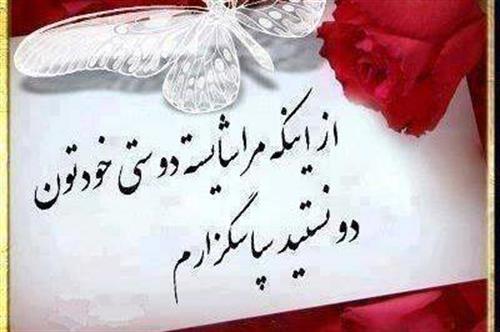 از اینکه مرا شایسته دوستی خودتون
دونستید سپاسگزارم